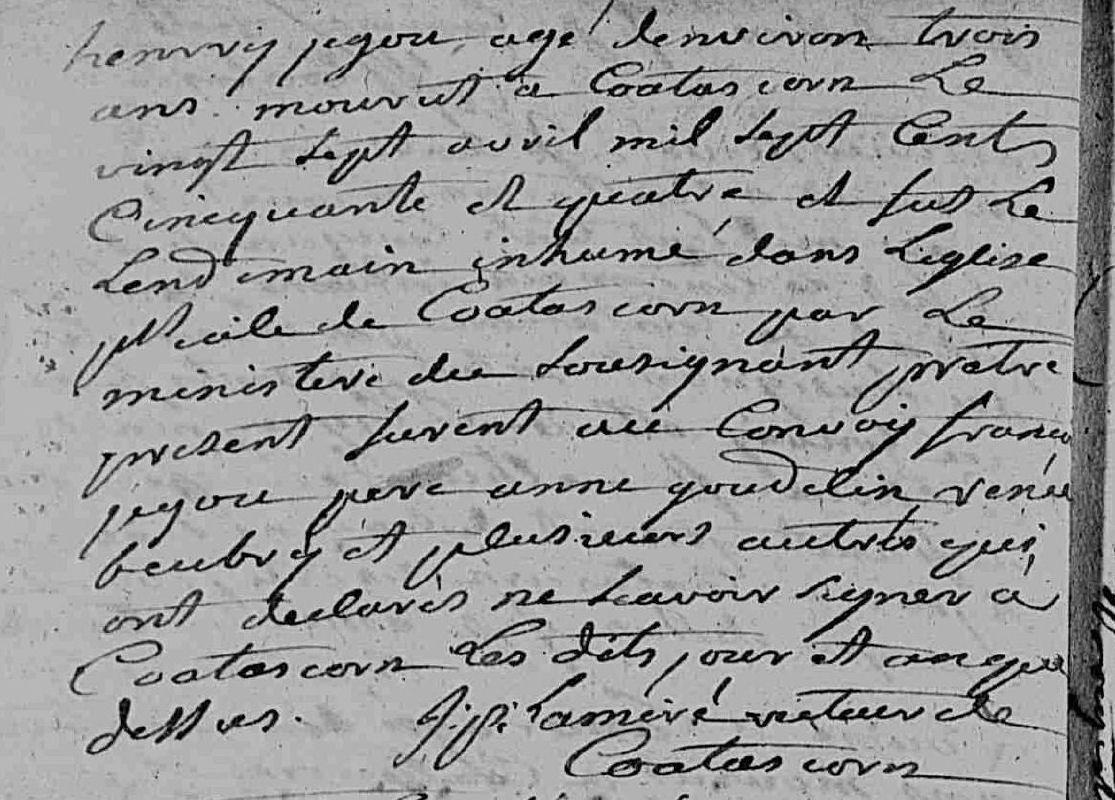 henrry jegou, agé denviron trois
ans mourut a Coatascorn Le
vingt sept avril mil sept Cents
Cincquante et quatre et fut Le
Lendemain inhumé dans Leglise
plsciale de Coatascorn par Le
ministere du Sousignant pretre
present furent au Convoy franc
jegou pere anne goudelin renée
beubry et plusieurs autres qui
ont declarés ne scavoir signer a
Coatascorn Les dits jour et an que
dessus. J: p: Lamiré recteur de
Coatascorn